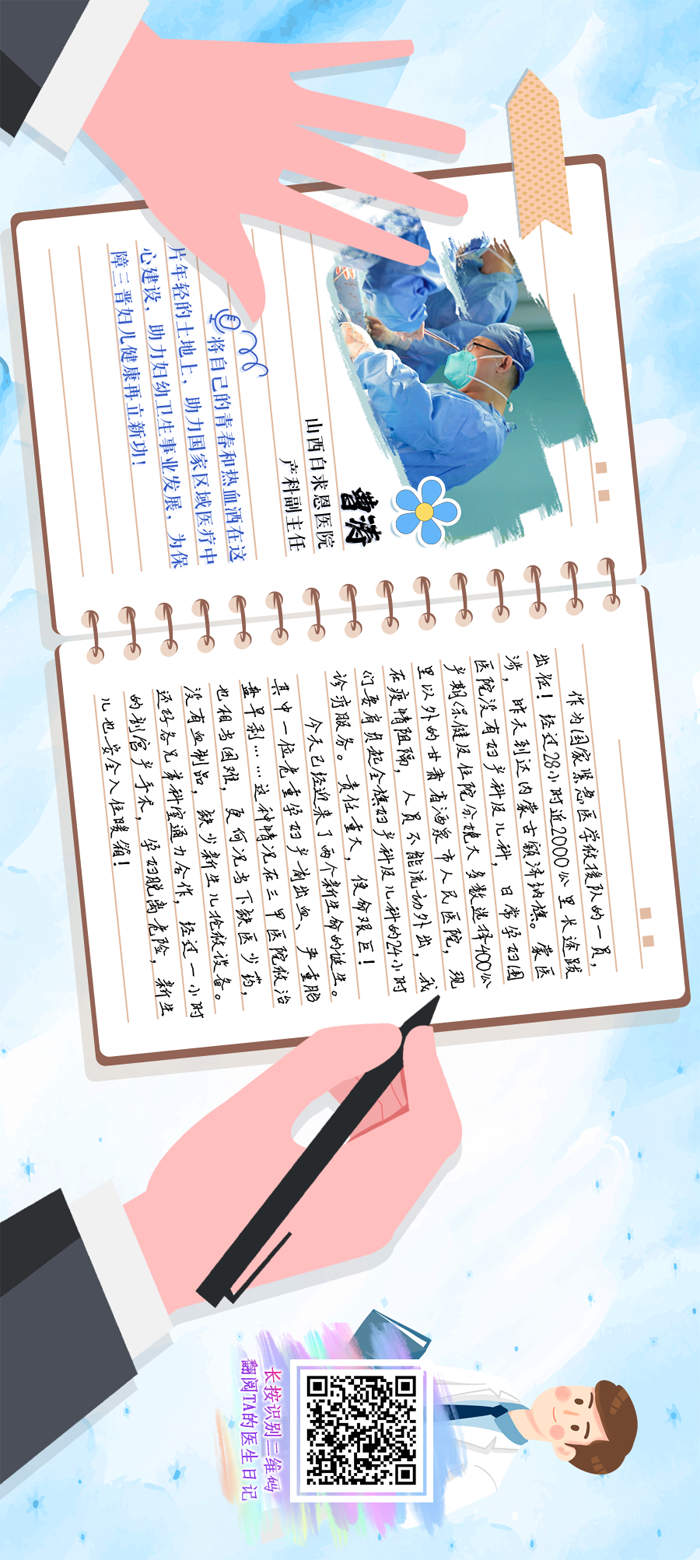 曹涛
山西白求恩医院
产科副主任
将自己的青春和热血洒在这
片年轻的土地上，助力国家区域医疗中
心建设，助力妇幼卫生事业发展，为保
障三晋妇儿健康再立新功！
作为国家紧急医学救援队的一员，
出征！经过28小时近2000公里长途跋
涉，昨天到达内蒙古额济纳旗。蒙医
医院没有妇产科及儿科，日常孕妇围
产期保健及住院分娩大多数选择400公
里以外的甘肃省酒泉市人民医院，现
在疫情阻隔，人员不能流动外出，我
们要肩负起全旗妇产科及儿科的24小时
诊疗服务。责任重大，使命艰巨！
今天已经迎来了两个新生命的诞生。
其中一位危重孕妇产前出血、严重胎
盘早剥……这种情况在三甲医院救治
也相当困难，更何况当下缺医少药，
没有血制品，缺少新生儿抢救设备。
还好各兄弟科室通力合作，经过一小时
的剖宫产手术，孕妇脱离危险，新生
儿也安全入住暖箱！
长按识别二维码
翻阅TA的医生日记